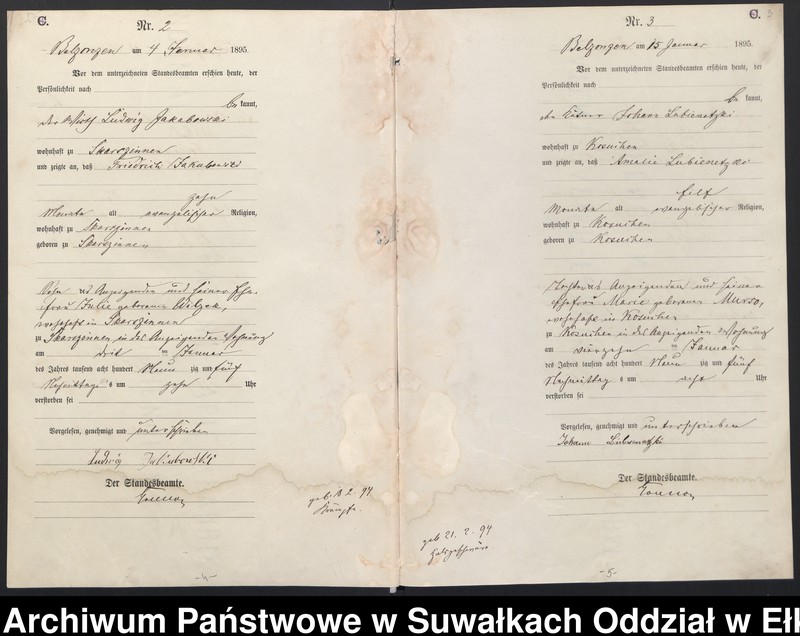 C.
Nr. 2
Belzonzen am 4 Januar 1895.
Vor dem unterzeichneten Standesbeamten erschien heute, der
Persönlichkeit nach
be kannt,
der Wirth Ludwig Jakubowski
wohnhaft zu Skarzinnen
und zeigte an, daß Friedrich Jakubowski
zehn
Monate alt evangelischer Religion,
wohnhaft zu Skarzinnen
geboren zu Skarzinnen
Sohn des Anzeigenden und seiner Ehe-
frau Julie geborenen Wilzek,
wohnhaft in Skarzinnen
zu Skarzinnen in des Anzeigenden Wohnung
am drei ten Januar
des Jahres tausend acht hundert Neun zig und fünf
Nachmittags um zehn Uhr
verstorben sei
Vorgelesen, genehmigt und unterschrieben
Ludwig Jakubowski
Der Standesbeamte.
geb. 2. 94
Krämpfe.
-4-
C. 3
Nr. 3
Belzonzen am 15 Januar 1895.
Vor dem unterzeichneten Standesbeamten erschien heute, der
Persönlichkeit nach
be kannt,
der Käthner Johann Lubienetzki
wohnhaft zu Kosuchen
und zeigte an, daß Amalie Lubienetzki
elf
Monate alt evangelischer Religion,
wohnhaft zu Kosuchen
geboren zu Kosuchen
Tochter des Anzeigenden und seiner
Ehefrau Marie geborenen Murso,
wohnhaft in Kosuchen
zu Kosuchen in des Anzeigenden Wohnung
am vierzehn ten Januar
des Jahres tausend acht hundert Neun zig und fünf
Nachmittags um acht Uhr
verstorben sei
Vorgelesen, genehmigt und unterschrieben
Johann Lubienetzki
Der Standesbeamte.
geb 21. 2. 94
Halsgeschwüre
-5-
Archiwum Państwowe w Suwałkach Oddział w Ełk